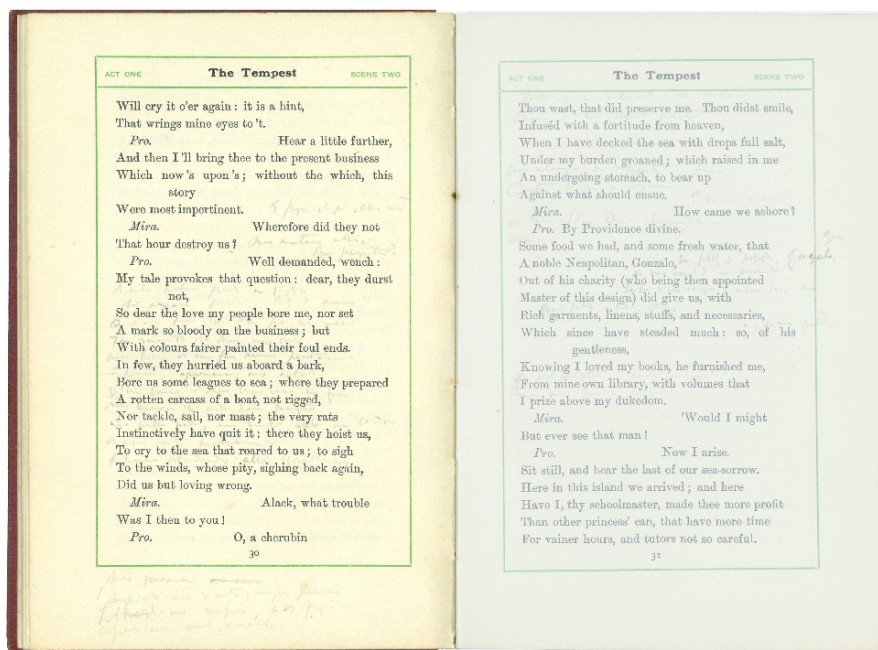 ACT ONE The Tempest SCENE TWO
Will cry it o'er again : it is a hint,
That wrings mine eyes to 't.
Pro. Hear a little further,
And then I 'll bring thee to the present business
Which now 's upon 's ; without the which, this
story
Were most impertinent.
Mira. Wherefore did they not
That hour destroy us ?
Pro. Well demanded, wench :
My tale provokes that question : dear, they durst
not,
So dear the love my people bore me, nor set
A mark so bloody on the business ; but
With colours fairer painted their foul ends.
In few, they hurried us aboard a bark,
Bore us some leagues to sea ; where they prepared
A rotten carcass of a boat, not rigged,
Nor tackle, sail, nor mast ; the very rats
Instinctively have quit it : there they hoist us,
To cry to the sea that roared to us ; to sigh
To the winds, whose pity, sighing back again,
Did us but loving wrong.
Mira. Alack, what trouble
Was I then to you !
Pro. O, a cherubin
30
ACT ONE The Tempest SCENE TWO
Thou wast, that did preserve me. Thou didst smile,
Infuséd with a fortitude from heaven,
When I have decked the sea with drops full salt,
Under my burden groaned ; which raised in me
An undergoing stomach, to bear up
Against what should ensue.
Mira. How came we ashore ?
Pro. By Providence divine.
Some food we had, and some fresh water, that
A noble Neapolitan, Gonzalo,
Out of his charity (who being then appointed
Master of this design) did give us, with
Rich garments, linens, stuffs, and necessaries,
Which since have steaded much : so, of his
gentleness,
Knowing I loved my books, he furnished me,
From mine own library, with volumes that
I prize above my dukedom.
Mira. 'Would I might
But ever see that man !
Pro. Now I arise.
Sit still, and hear the last of our sea-sorrow.
Here in this island we arrived ; and here
Have I, thy schoolmaster, made thee more profit
Than other princess' can, that have more time
For vainer hours, and tutors not so careful.
31